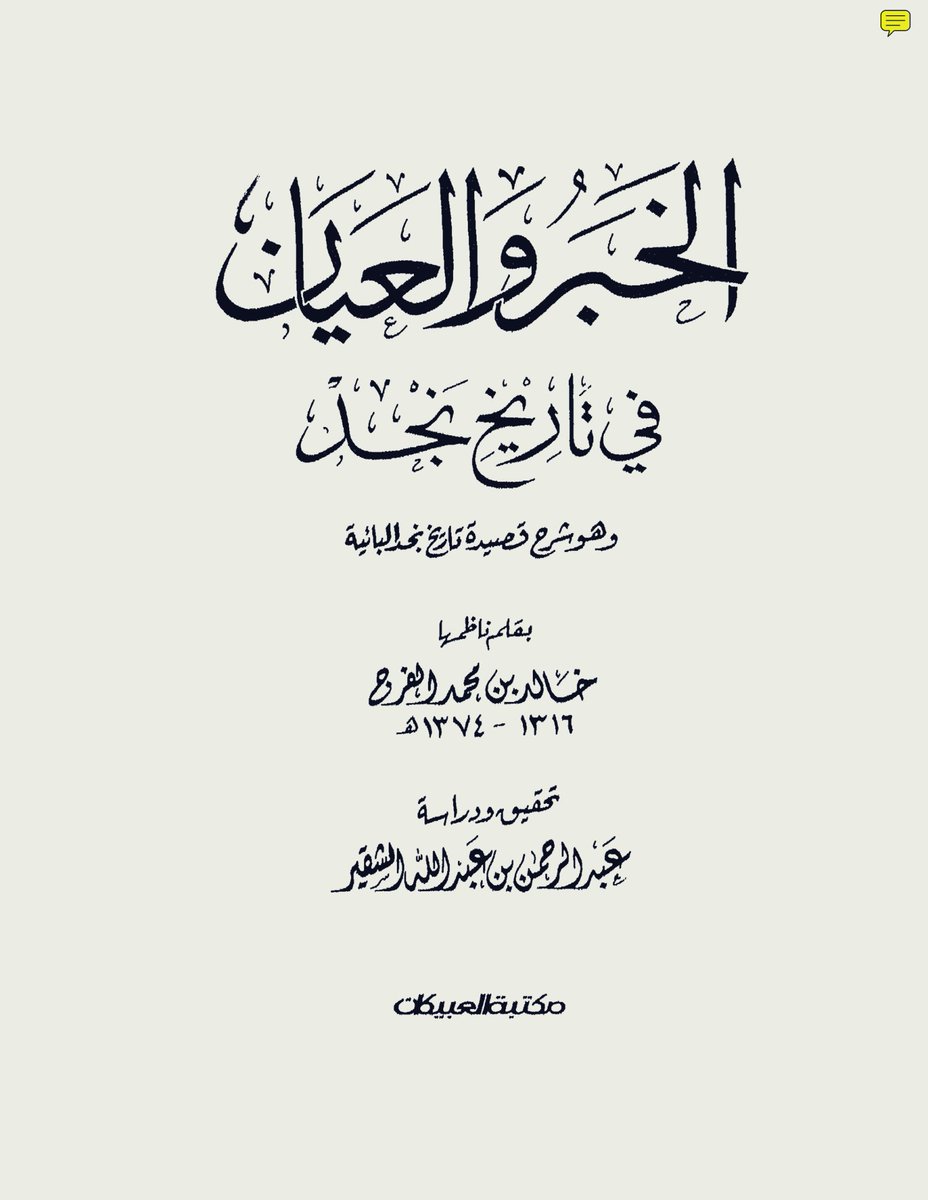 الخَبَرُ وَالعَيَان
في تَارِيْخِ نَجْدْ
وهو شرح قصيدة تاريخ نجد البائية
بقلم ناظمها
خالد بن محمد الفرج
١٣١٦ - ١٣٧٤ هـ
تحقيق ودراسة
عَبد الرحمن بن عَبد الله الشقير
مكتبة العبيكان